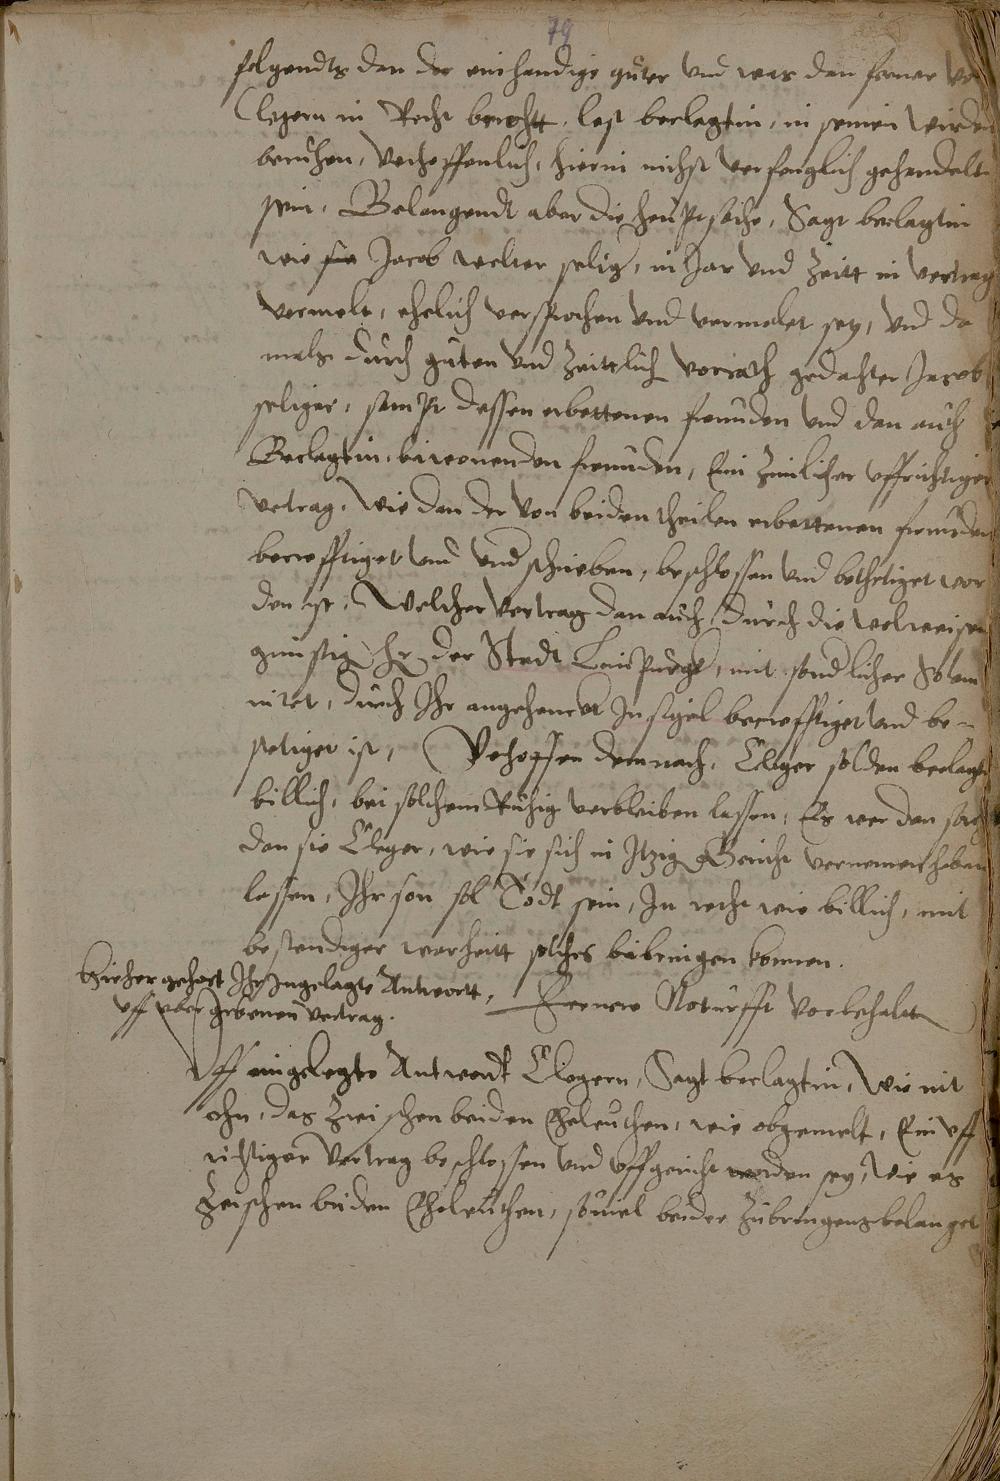 79
folgendts dan der einhandige guter und was dan ferner von
Clegern in Recht bracht, lest beclagtin, in seinen wirden
beruhen, Verhoffenlich, hierin nichst verfenglich gehandelt
sein, Belangendt aber die heuptsache, Sagt beclagtin
wie sie Jacob welter selig, in Jar und Zeitt in vertrag
vermelt, ehelich versprochen und vermelet sey, und da
mals durch guten und Zeittlich vorrath gedachter Jacob
seliger, sampt dessen erbettenen freunden und dan auch
Beclagtin, beiwonenden freunden, Ein Zimlicher uffrichtiger
vetrag, wie dan der von beiden theilen erbettenen freunden
becrefftiget und undschrieben, beschlossen und bethetiget wor
den ist, Welcher vertrag dan auch durch die wolweisen
gunstig Hr der Stadt, mit sondlicher Solem
nitet, durch Ihr angehenckt Insigel becrefftiget und be-
stetiget ist, Vehoffen demnach, Cleger solden beclagt
billich, bei solchem Ruhig verbleiben lassen, Es wer dan sach
dan sie Cleger, wie sie sich in Itzig Gericht vernemen haben
lassen, Ihr son sol Todt sein, In recht wie billich, mit
bestendiger warheitt solches beibringen konnen.
hieher gehort Ihr Ingelagte Antwortt,
uff uber gebenen vertrag.
Fernere Noturfft vorbehalt
Uff eingelegte Antwordt Clegern, Sagt beclagtin, wie nit
ohn, das Zwischen beiden Eheleuthen, wie obgemelt, Ein uff
richtiger Vertrag beschlossen und uffgericht worden sey, wie es
Zwischen beiden Eheleuthen, souiel beider Zubringens belanget